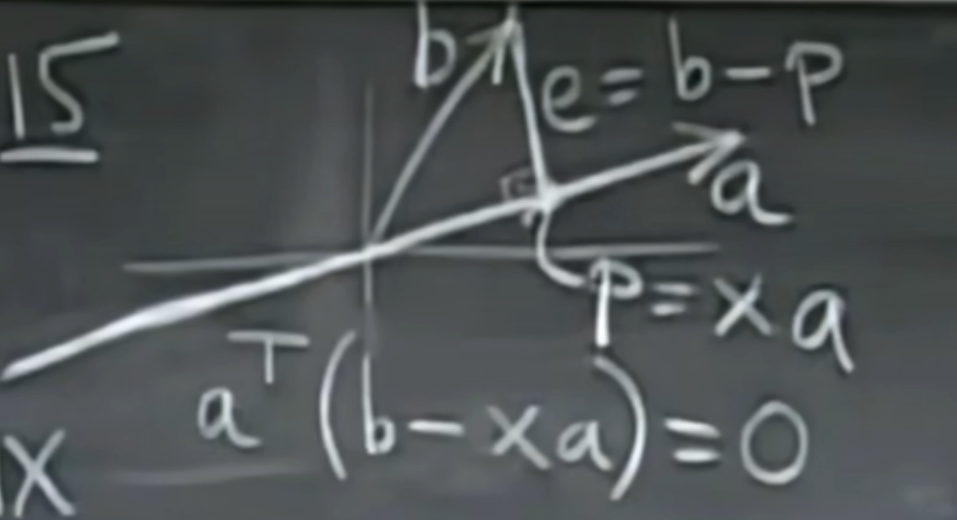 15
b
e = b - p
a
p = x a
aᵀ (b - xa) = 0
X